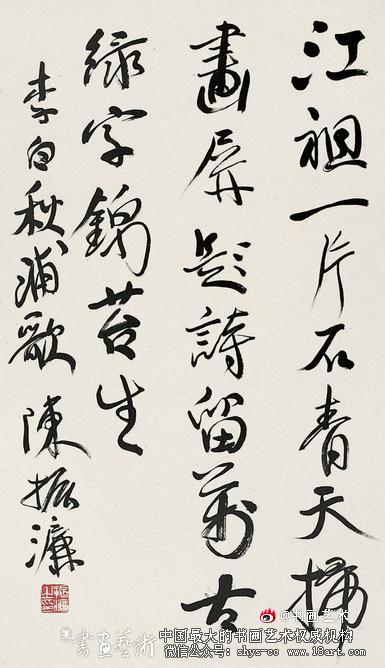 江祖一片石青天掃
畫屏題詩留萬古
綠字錦苔生
李白秋浦歌 陳振濂
@书画艺术
書画藝術
中国最大的书画艺术权威机构
微信公众号: shys-cc www.18art.com